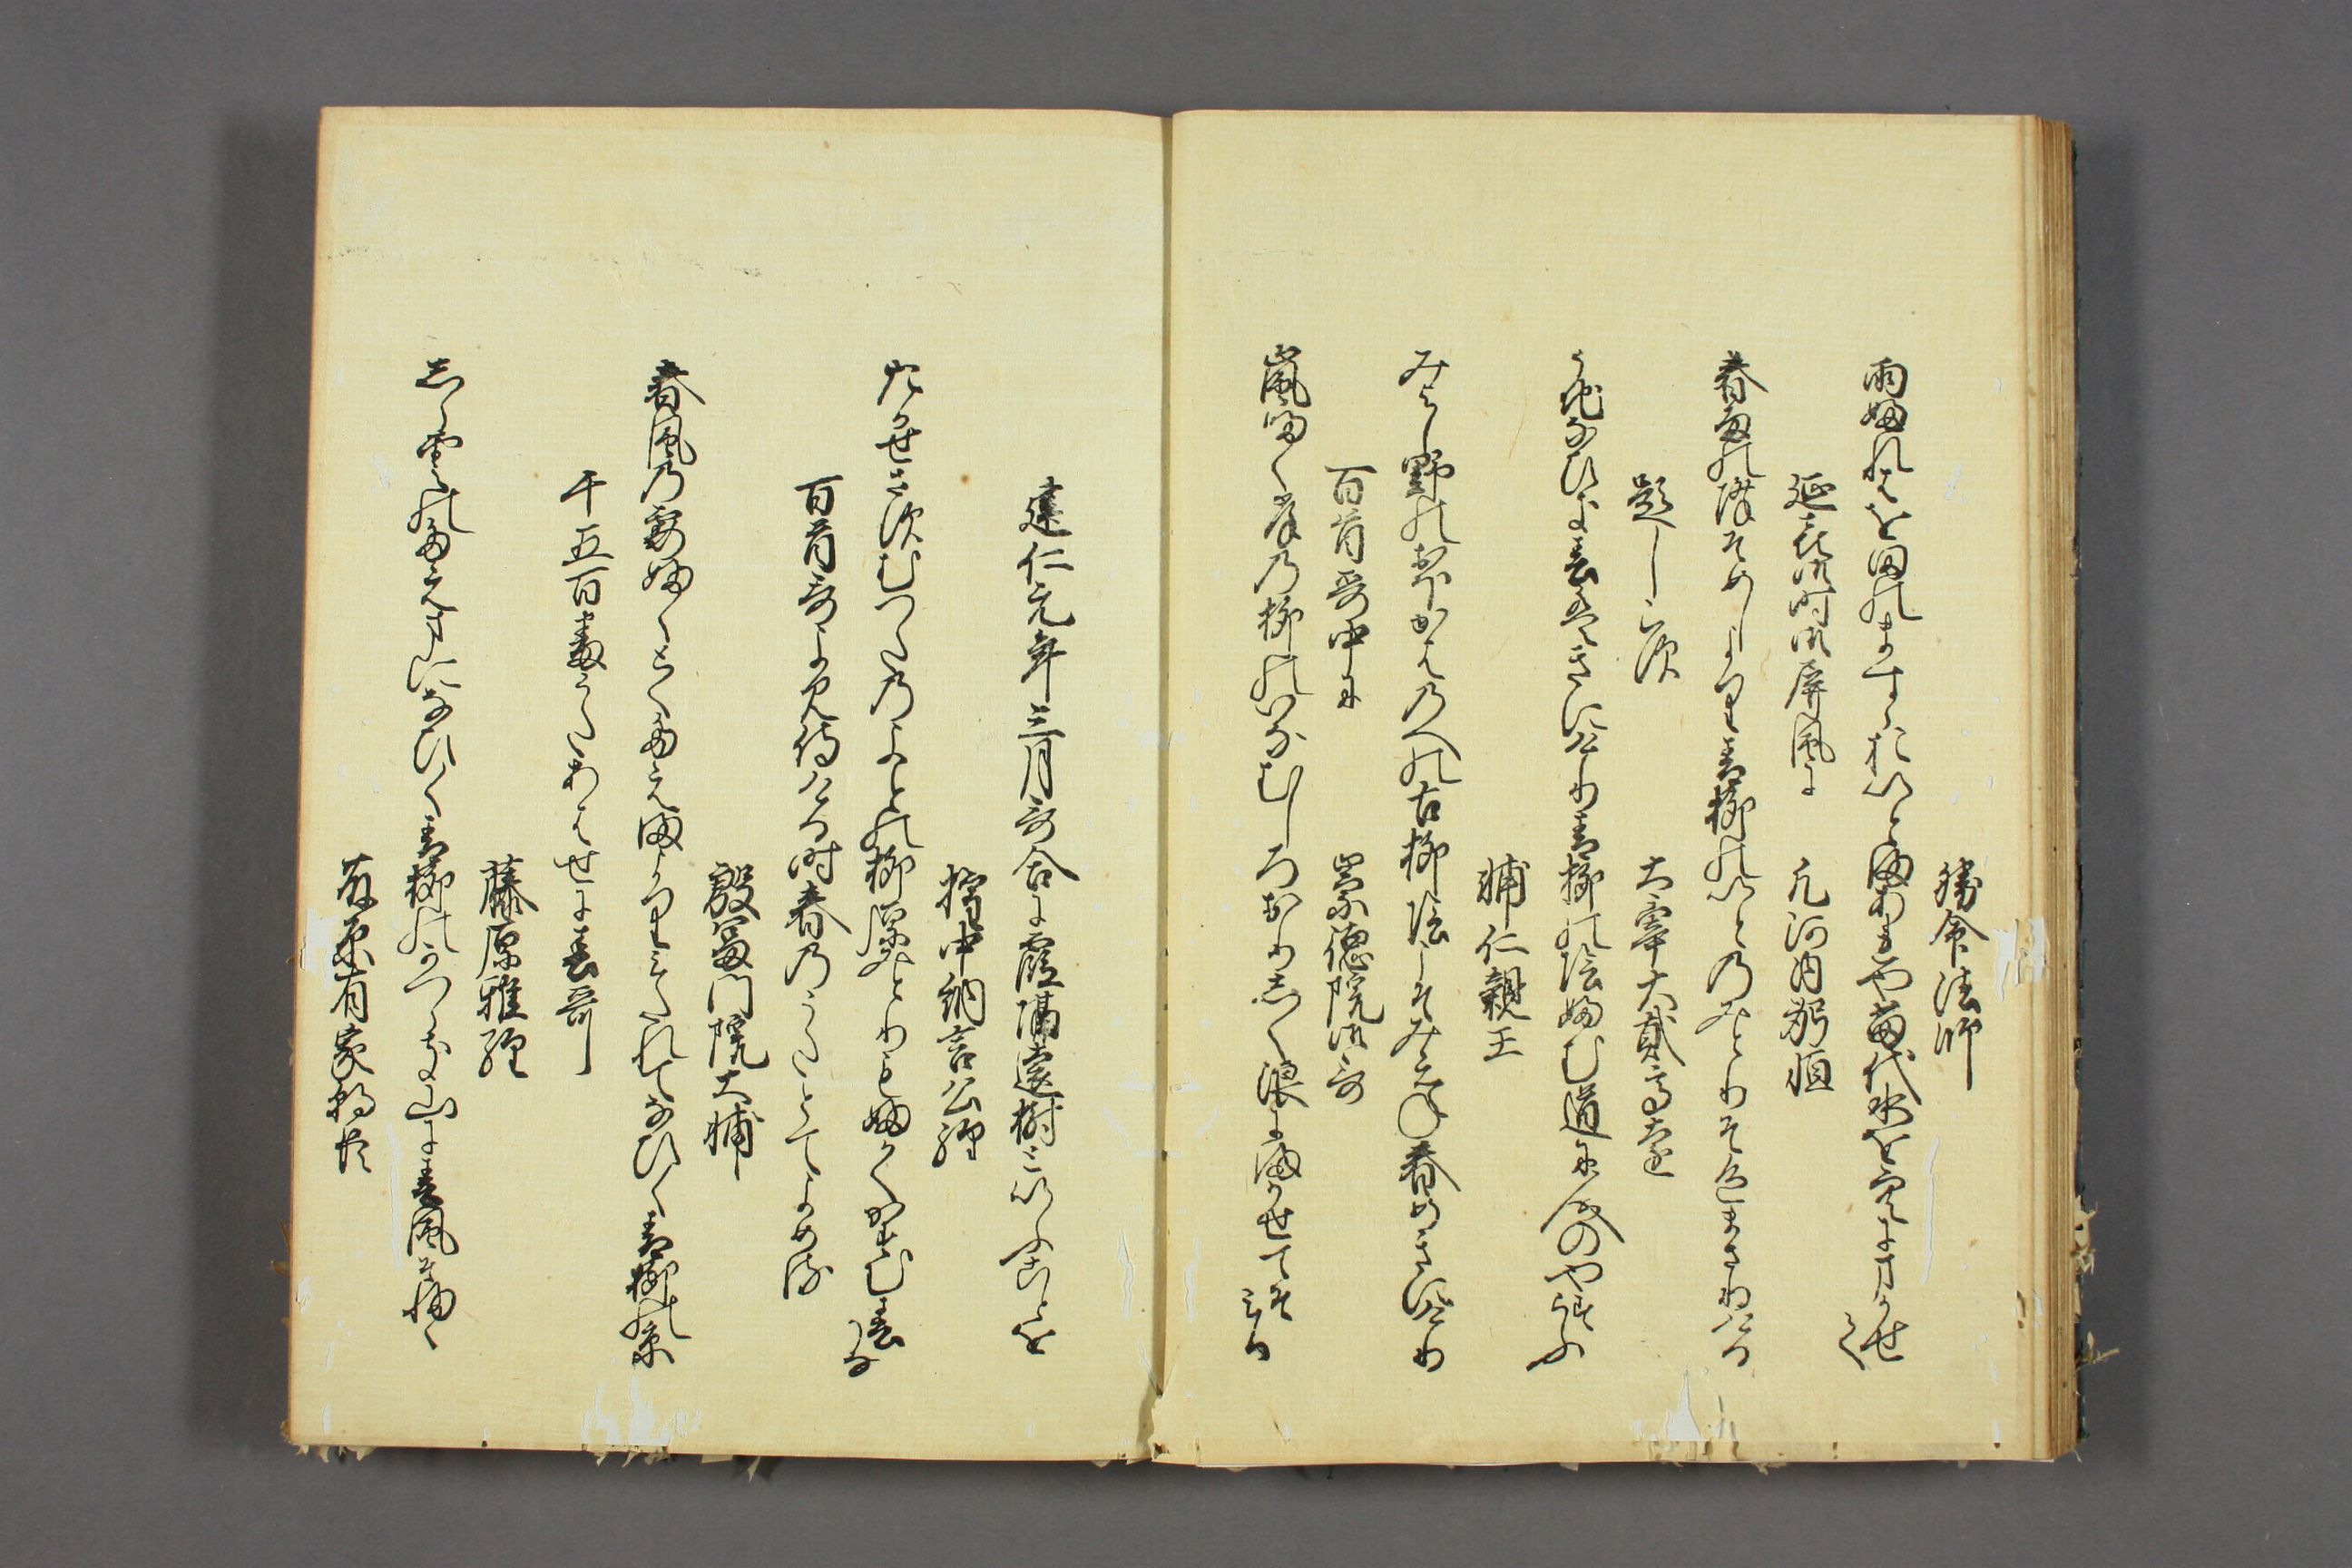 勝命法師
雨ふれはを田のますらおいとまあれや苗代水を空にまかせて
延喜御時御屏風に　凡河内躬恒
春雨のふりそめしより青柳のいとのみとりそ色まさりける
題しらす　大宰大貳高遠
うちなひき春はきにけり青柳の陰ふむ道に人のやすらふ
輔仁親王
みよし野のおほかはのへの古柳陰こそみえね春めきにけり
百首哥中に　崇徳院御哥
嵐吹く岸の柳のいなむしろおりしく浪にまかせてそみる
建仁元年三月哥合に霞隔遠樹といふことを
権中納言公経
たかせさすむつたのよとの柳原みとりもふかくかすむ春かな
百首哥よみ侍ける時春のうたとてよめる
殷冨門院大輔
春風の霞ふきとくたえまよりみたれてなひく青柳の糸
千五百番うたあはせに春哥
藤原雅経
しら雲のたえまになひく青柳のかつらき山に春風そ吹く
藤原有家朝臣